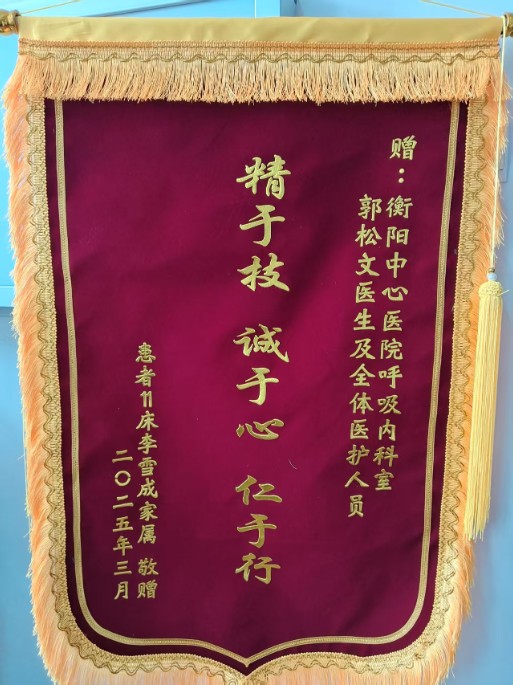 赠：衡阳中心医院呼吸内科室
郭松文医生及全体医护人员
精于技 诚于心 仁于行
患者11床李雪成家属 敬赠
二〇二五年三月